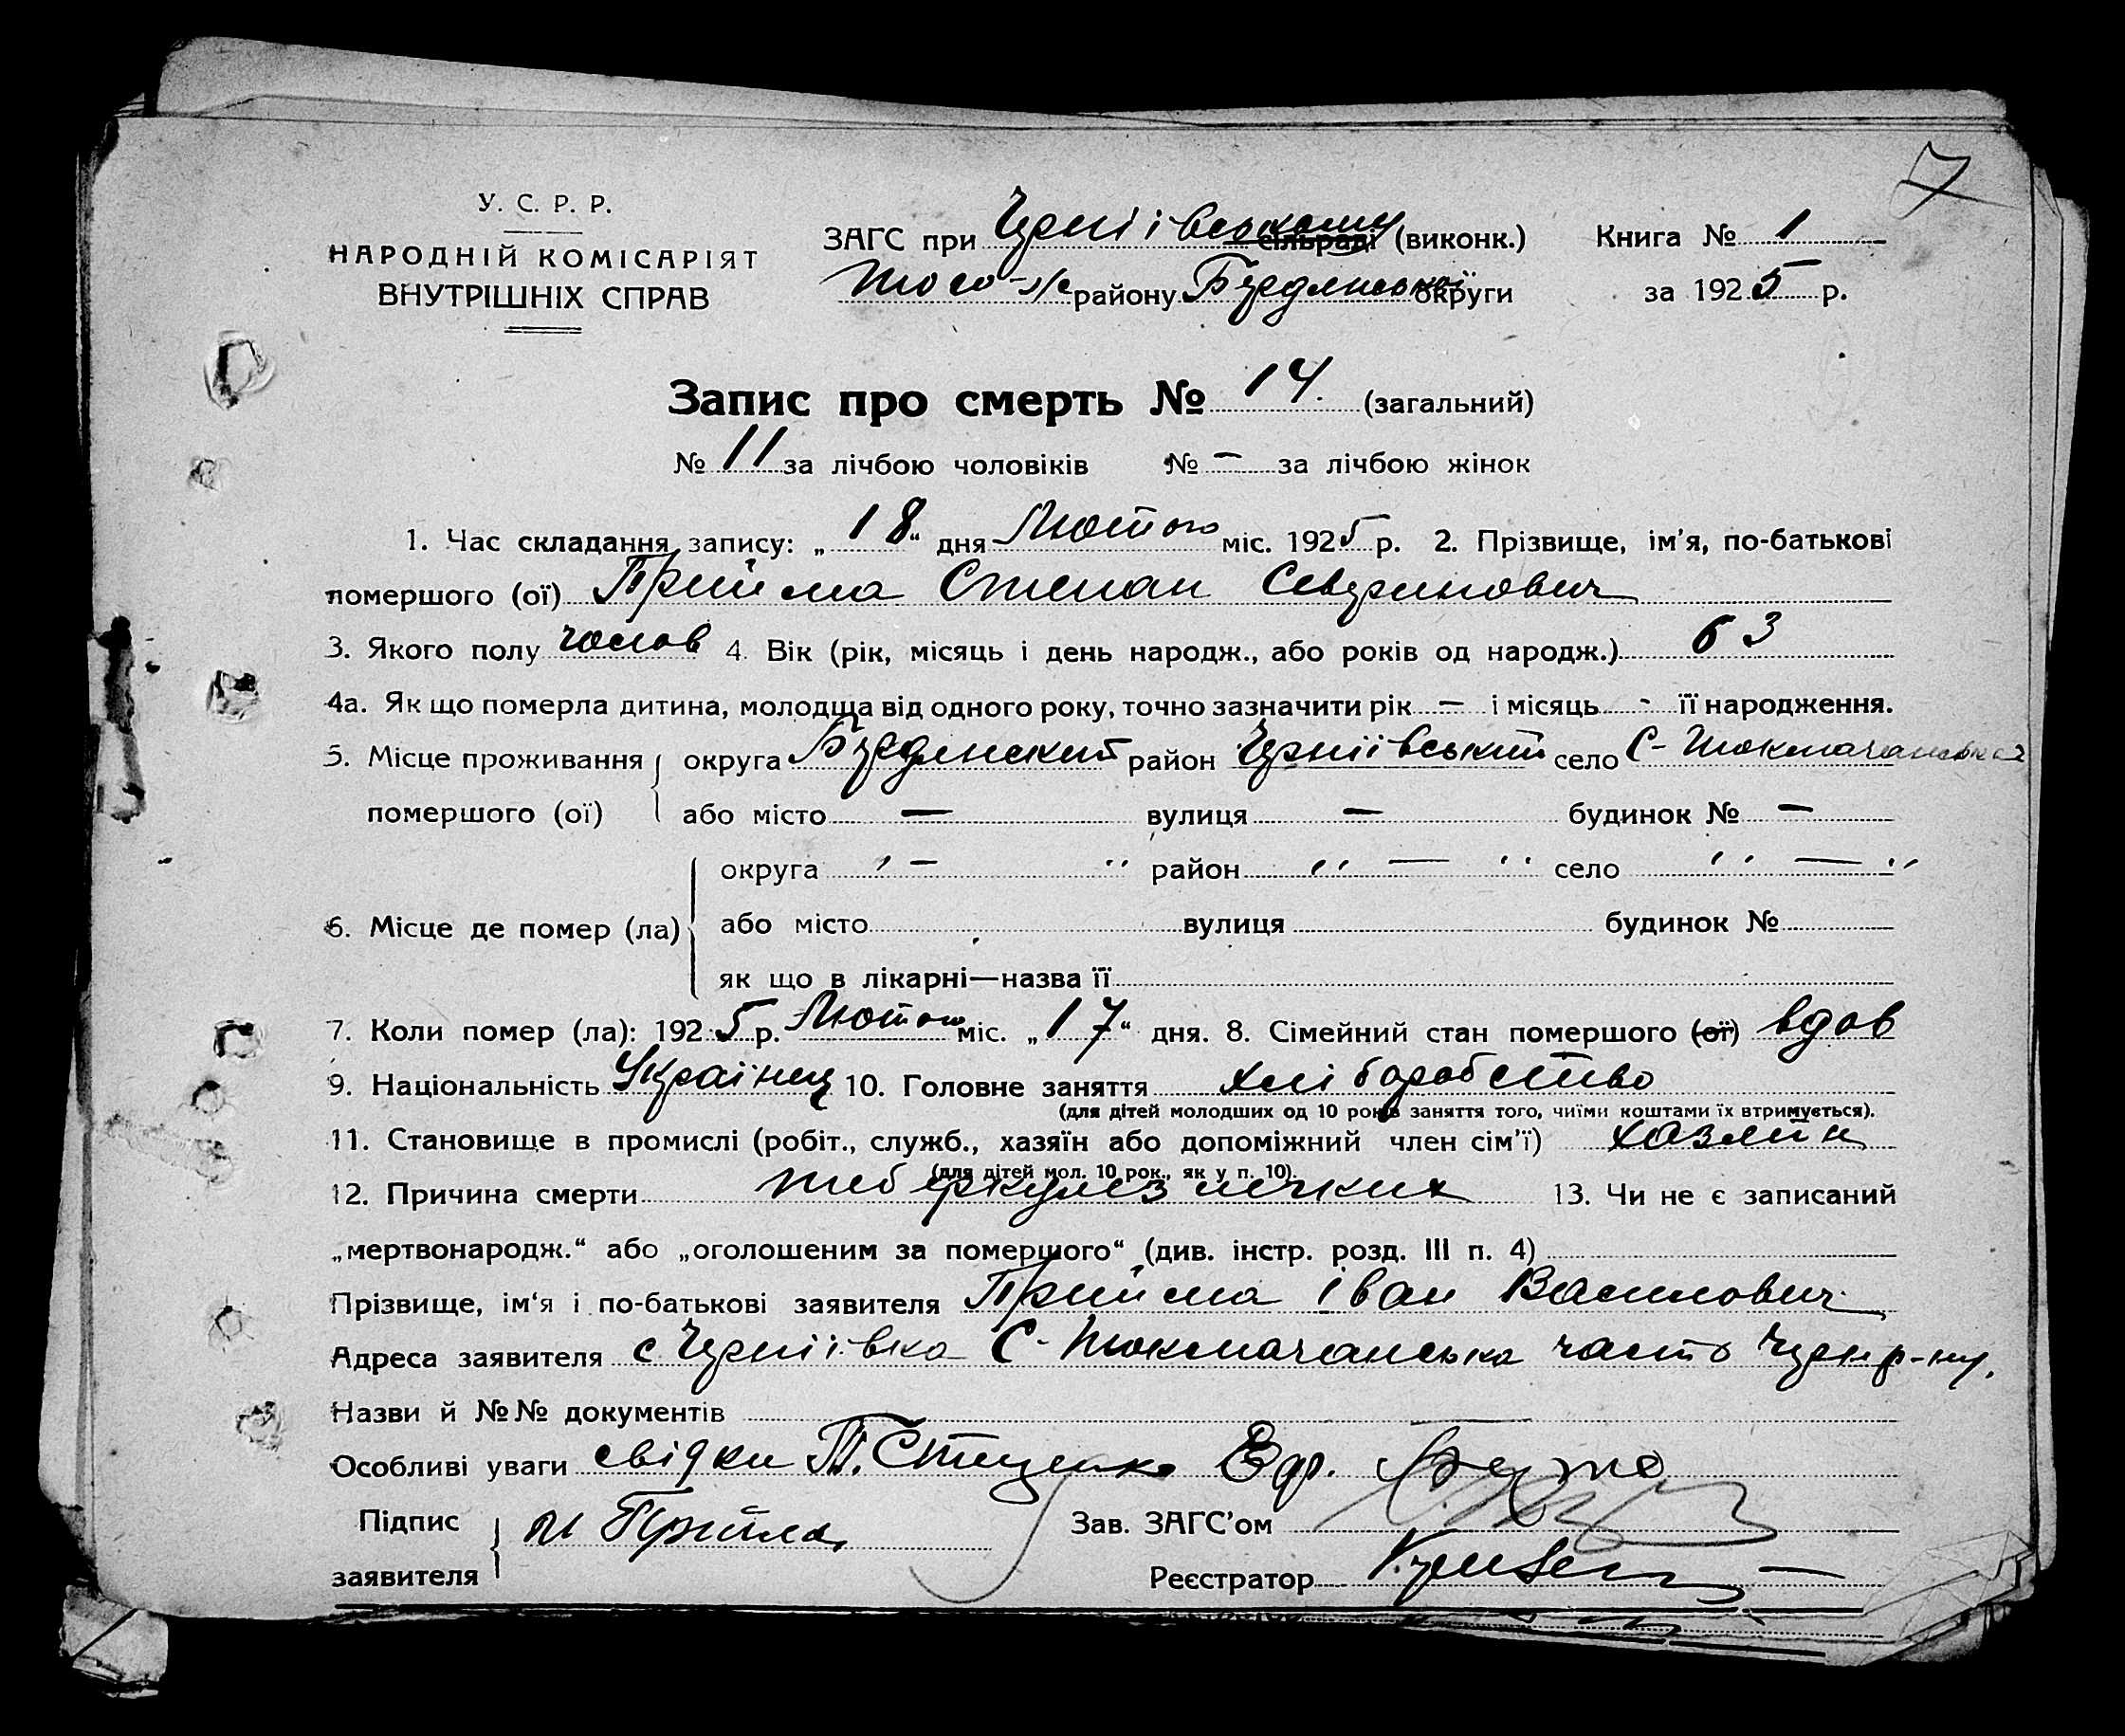 7
У. С. Р. Р.
НАРОДНІЙ КОМІСАРІЯТ
ВНУТРІШНІХ СПРАВ
ЗАГС при Черніївському сільраді (виконк.) Книга № 1
району Бердянської округи за 1925 р.
Запис про смерть № 14. (загальний)
№ 11 за лічбою чоловіків № — за лічбою жінок
1. Час складання запису: „18“ дня Лютого міс. 1925 р. 2. Прізвище, ім'я, по-батькові
помершого (ої) Прийма Степан Северинович
3. Якого полу чолов 4. Вік (рік, місяць і день народж., або років од народж.) 63
4а. Як що померла дитина, молодща від одного року, точно зазначити рік — і місяць - її народження.
5. Місце проживання округа Бердянский район Черніївський село С-Токмачанська
помершого (ої) або місто — вулиця — будинок № —
округа „ — “ район „ — “ село „ — “
6. Місце де помер (ла) або місто вулиця будинок №
як що в лікарні—назва її
7. Коли помер (ла): 1925 р. Лютого міс. „17“ дня. 8. Сімейний стан помершого (ої) вдов
9. Національність Українец 10. Головне заняття хліборобство
(для дітей молодших од 10 років заняття того, чиїми коштами їх втримується).
11. Становище в промислі (робіт., служб., хазяїн або допоміжний член сім'ї) хозяйн
(для дітей мол. 10 рок., як у п. 10).
12. Причина смерти теберкулез легких 13. Чи не є записаний
„мертвонародж.“ або „оголошеним за помершого“ (див. інстр. розд. III п. 4)
Прізвище, ім'я і по-батькові заявителя Прийма Іван Василович
Адреса заявителя с Черніївка С-Токмачанська часть Черн р-ну.
Назви й №№ документів
Особливі уваги свідки П. Стеценко
Підпис И Прийма Зав. ЗАГС'ом
заявителя Реєстратор